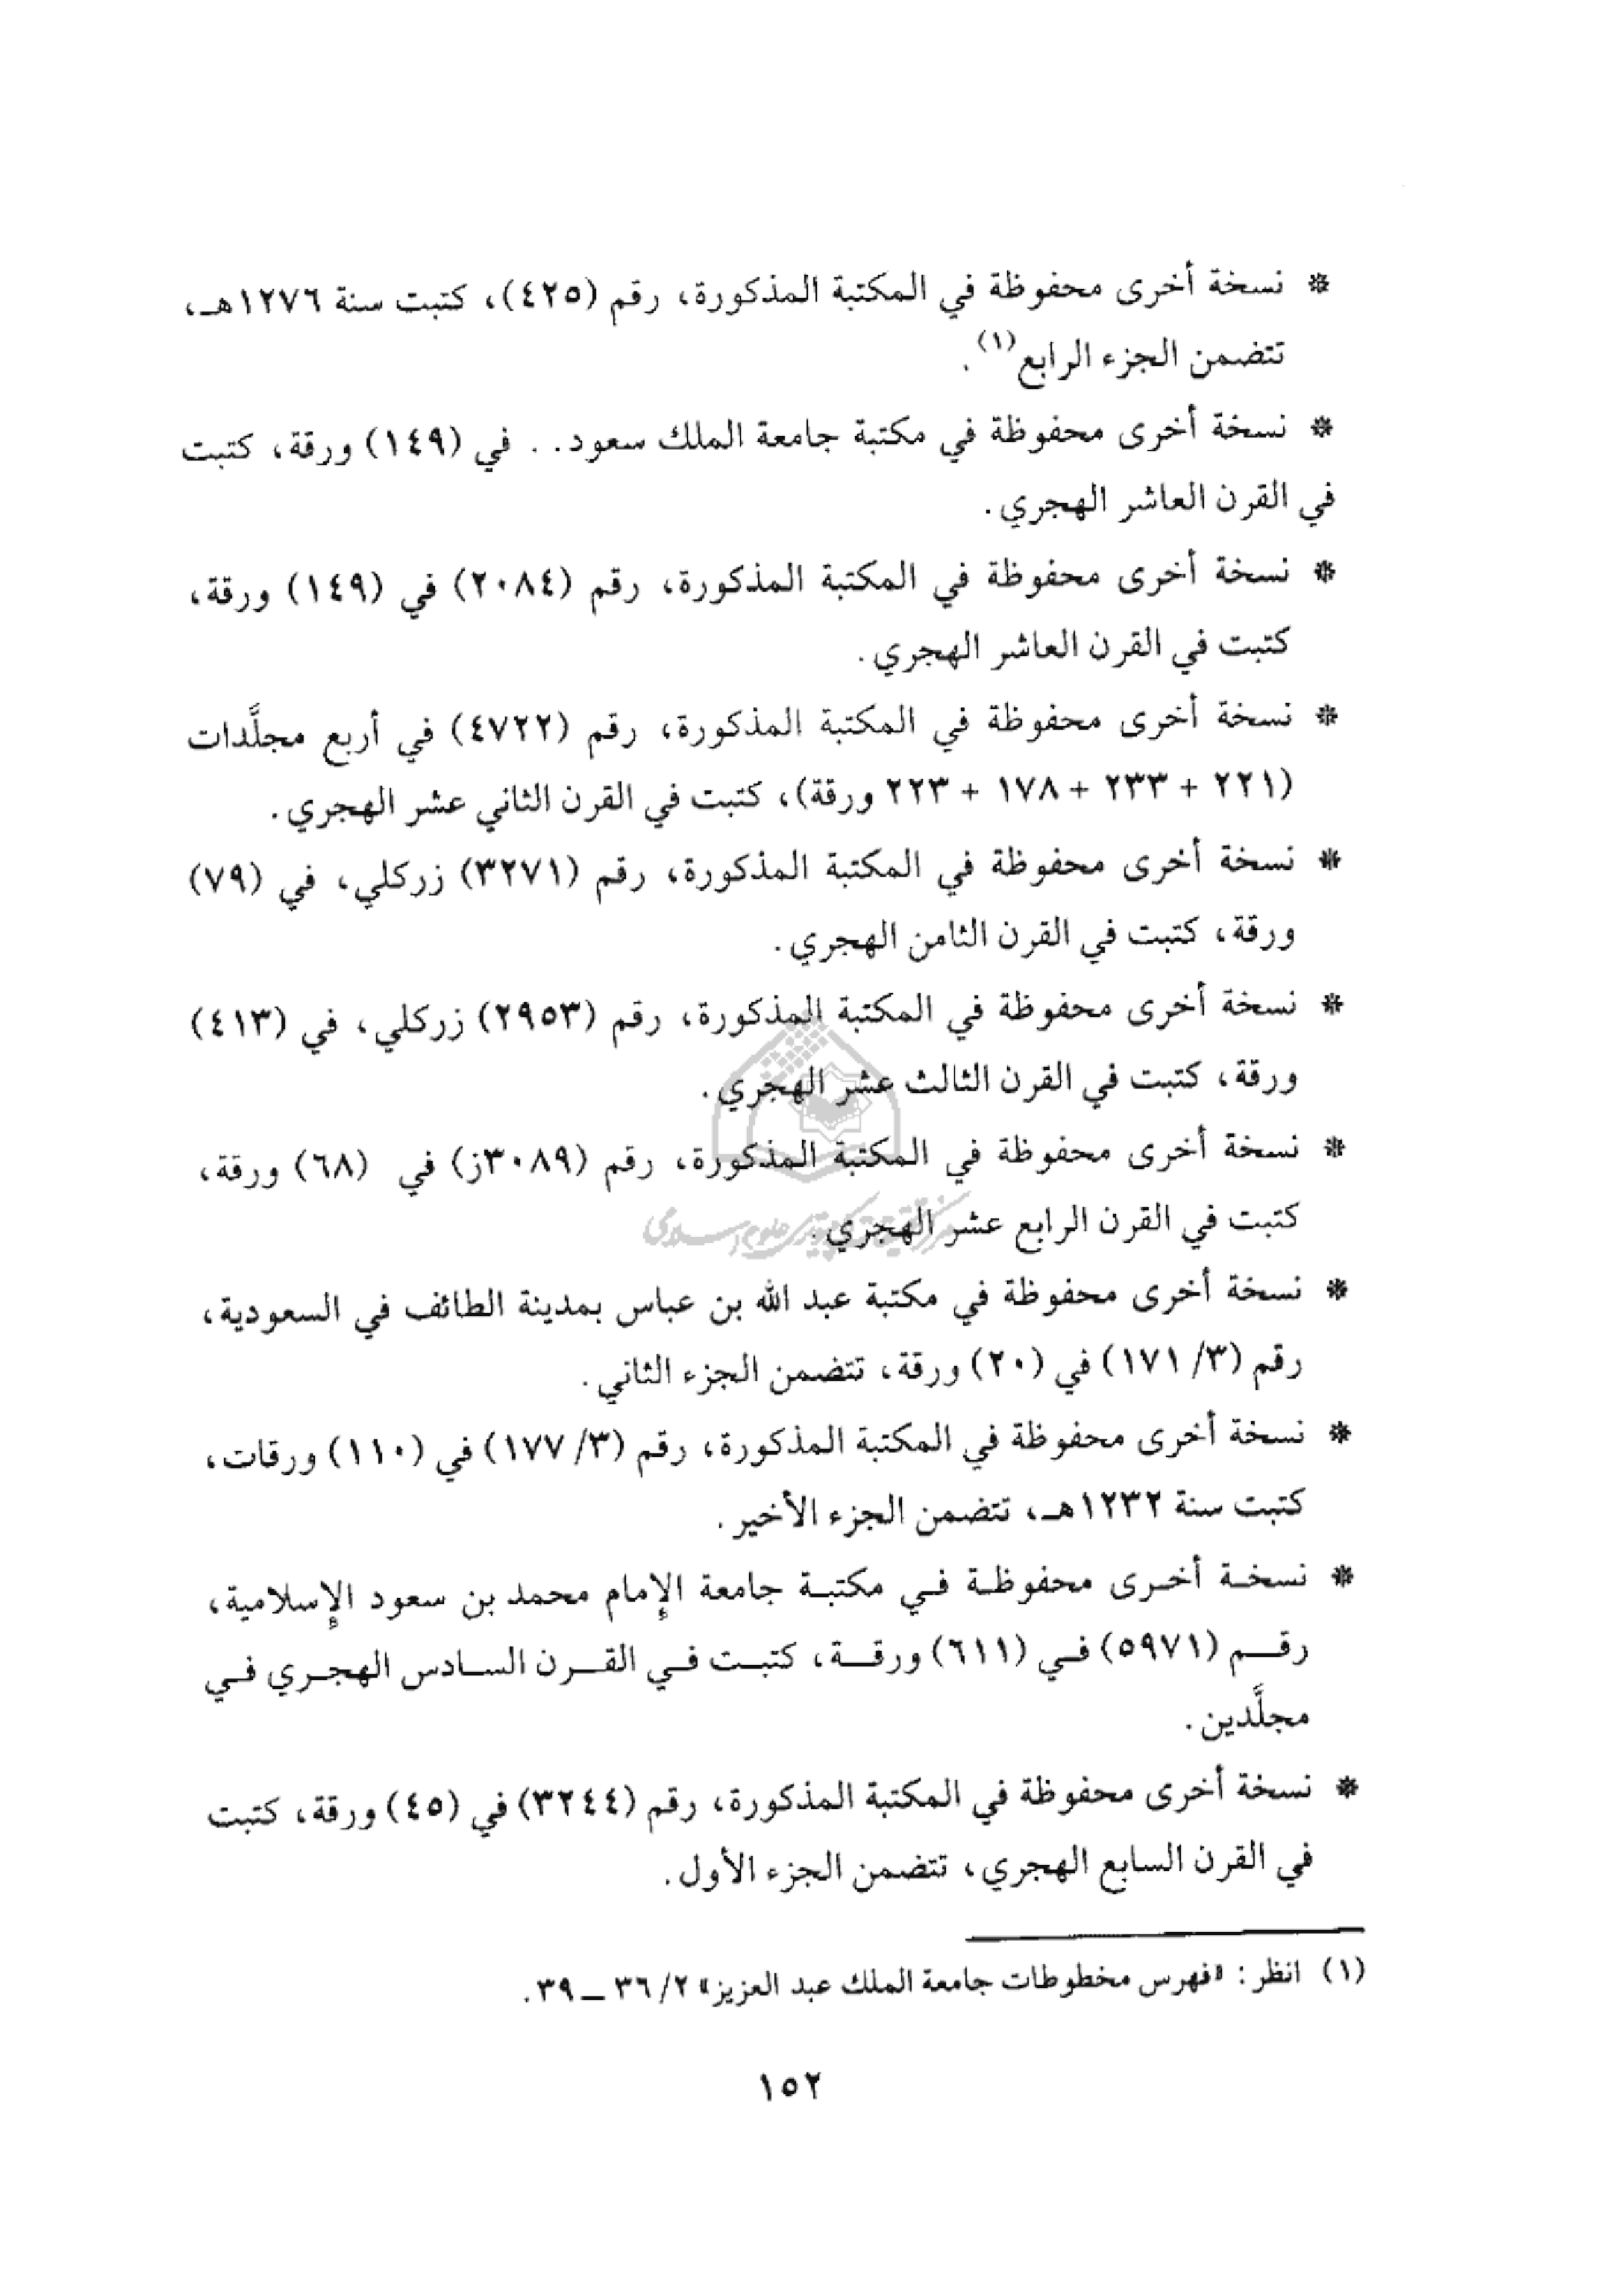 * نسخة أخرى محفوظة في المكتبة المذكورة، رقم (٤٢٥)، كتبت سنة ١٢٧٦هـ،
تتضمن الجزء الرابع(١).
* نسخة أخرى محفوظة في مكتبة جامعة الملك سعود.. في (١٤٩) ورقة، كتبت
في القرن العاشر الهجري.
* نسخة أخرى محفوظة في المكتبة المذكورة، رقم (٢٠٨٤) في (١٤٩) ورقة،
كتبت في القرن العاشر الهجري.
* نسخة أخرى محفوظة في المكتبة المذكورة، رقم (٤٧٢٢) في أربع مجلَّدات
(٢٢١ + ٢٣٣ + ١٧٨ + ٢٢٣ ورقة)، كتبت في القرن الثاني عشر الهجري.
* نسخة أخرى محفوظة في المكتبة المذكورة، رقم (٣٢٧١) زركلي، في (٧٩)
ورقة، كتبت في القرن الثامن الهجري.
* نسخة أخرى محفوظة في المكتبة المذكورة، رقم (٢٩٥٣) زركلي، في (٤١٣)
ورقة، كتبت في القرن الثالث عشر الهجري.
* نسخة أخرى محفوظة في المكتبة المذكورة، رقم (٣٠٨٩ز) في (٦٨) ورقة،
كتبت في القرن الرابع عشر الهجري.
* نسخة أخرى محفوظة في مكتبة عبد الله بن عباس بمدينة الطائف في السعودية،
رقم (٣/ ١٧١) في (٢٠) ورقة، تتضمن الجزء الثاني.
* نسخة أخرى محفوظة في المكتبة المذكورة، رقم (٣/ ١٧٧) في (١١٠) ورقات،
كتبت سنة ١٢٣٢هـ، تتضمن الجزء الأخير.
* نسخـة أخـرى محفوظـة فـي مكتبـة جامعة الإمام محمد بن سعود الإسلامية،
رقــم (٥٩٧١) فـي (٦١١) ورقـة، كتبـت فـي القــرن السـادس الهجـري فـي
مجلَّدين.
* نسخة أخرى محفوظة في المكتبة المذكورة، رقم (٣٢٤٤) في (٤٥) ورقة، كتبت
في القرن السابع الهجري، تتضمن الجزء الأول.
(١) انظر: «فهرس مخطوطات جامعة الملك عبد العزيز» ٢/ ٣٦ ــ ٣٩.
١٥٢